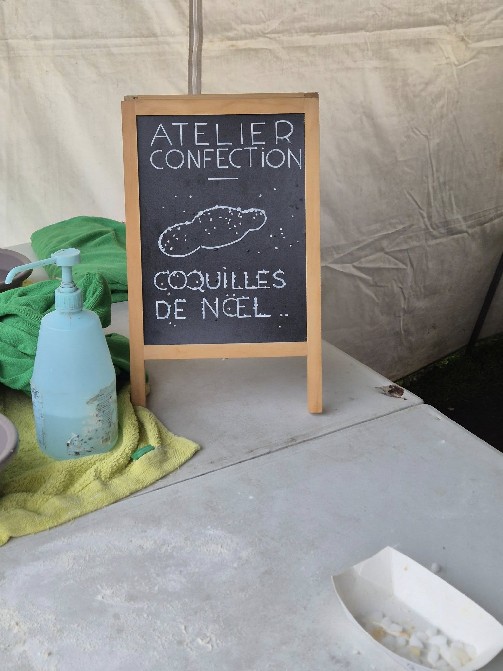 ATELIER
CONFECTION
COQUILLES
DE NOËL ..